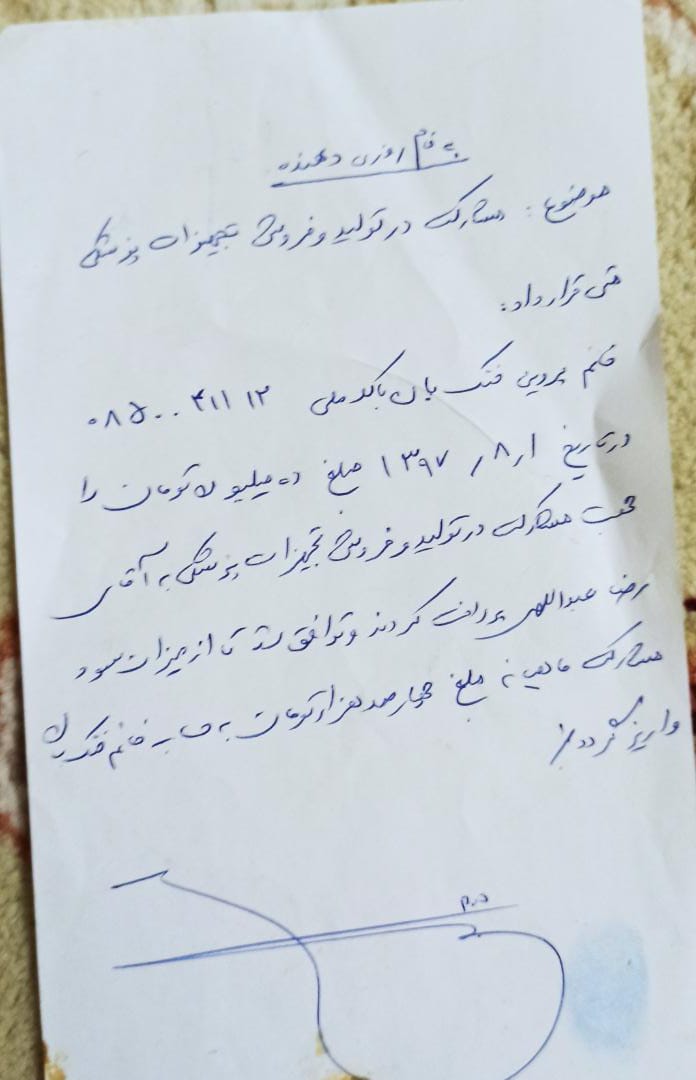 به نام روزی دهنده
موضوع: مشارکت در تولید و فروش تجهیزات پزشکی
متن قرارداد:
خانم پروین خنک بان با کد ملی ۰۸۵۰۰۴۱۱۱۲
در تاریخ ۱۳۹۷/۸/۱ مبلغ ده میلیون تومان را
جهت مشارکت در تولید و فروش تجهیزات پزشکی به آقای
رضا عبداللهی پرداخت کردند و توافق شد تا از میزان سود
مشارکت ماهیانه مبلغ چهارصد هزار تومان به حساب خانم خنک بان
واریز گردد./